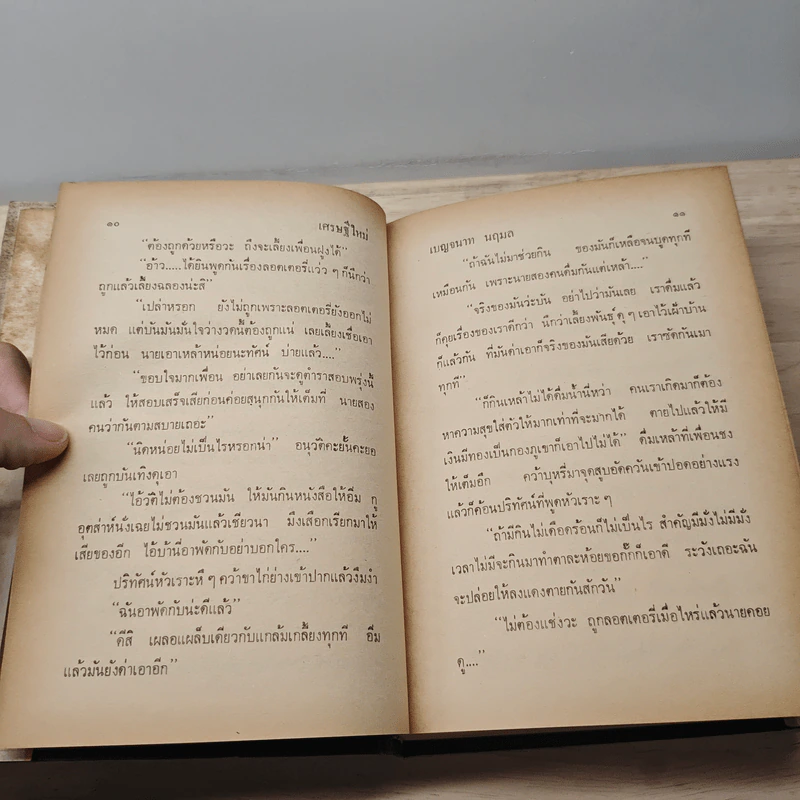 ๑๐
เศรษฐีใหม่
“ต้องถูกด้วยหรือวะ ถึงจะเลี้ยงเพื่อนฝูงได้”
“อ้าว.....ได้ยินพูดกันเรื่องลอตเตอรี่แว่ว ๆ ก็นึกว่า
ถูกแล้วเลี้ยงฉลองน่ะสิ”
“เปล่าหรอก ยังไม่ถูกเพราะลอตเตอรี่ยังออกไม่
หมด แต่บันมันมั่นใจว่างวดนี้ต้องถูกแน่ เลยเลี้ยงเชื่อเอา
ไว้ก่อน นายเอาเหล้าหน่อยนะทัศน์ บ่ายแล้ว....”
“ขอบใจมากเพื่อน อย่าเลยกันจะดูตำราสอบพรุ่งนี้
แล้ว ให้สอบเสร็จเสียก่อนค่อยสนุกกันให้เต็มที่ นายสอง
คนว่ากันตามสบายเถอะ”
“นิดหน่อยไม่เป็นไรหรอกน่า” อนุวัติคะยั้นคะยอ
เลยถูกบันเทิงดุเอา
“ไอ้วัติไม่ต้องชวนมัน ให้มันกินหนังสือให้อิ่ม กู
อุตส่าห์นั่งเฉยไม่ชวนมันแล้วเชียวนา มึงเสือกเรียกมาให้
เสียของอีก ไอ้บ้านี่อาพัดกับอย่าบอกใคร....”
ปริทัศน์หัวเราะหึ ๆ คว้าขาไก่ย่างเข้าปากแล้วงึมงำ
“ฉันอาพัดกับน่ะดีแล้ว”
“ดีสิ เผลอแผล็บเดียวกับแกล้มเกลี้ยงทุกที อิ่ม
แล้วมันยังด่าเอาอีก”
๑๑
เบญจนาท นฤมล
“ถ้าฉันไม่มาช่วยกิน ของมันก็เหลือจนบูดทุกที
เหมือนกัน เพราะนายสองคนดื่มกันแต่เหล้า....”
“จริงของมันว่ะบัน อย่าไปว่ามันเลย เราดื่มแล้ว
ก็คุยเรื่องของเราดีกว่า นึกว่าเลี้ยงพันธุ์ดุ ๆ เอาไว้เฝ้าบ้าน
ก็แล้วกัน ที่มันด่าเอาก็จริงของมันเสียด้วย เราซัดกันเมา
ทุกที”
“ก็กินเหล้าไม่ได้ดื่มน้ำนี่หว่า คนเราเกิดมาก็ต้อง
หาความสุขใส่ตัวให้มากเท่าที่จะมากได้ ตายไปแล้วให้มี
เงินมีทองเป็นกองภูเขาก็เอาไปไม่ได้” ดื่มเหล้าที่เพื่อนชง
ให้เต็มอีก คว้าบุหรี่มาจุดสูบอัดควันเข้าปอดอย่างแรง
แล้วก็ค้อนปริทัศน์ที่พูดหัวเราะ ๆ
“ถ้ามีกินไม่เดือดร้อนก็ไม่เป็นไร สำคัญมีมั่งไม่มีมั่ง
เวลาไม่มีจะกินมาทำตาละห้อยขอกั๊กก็เอาดี ระวังเถอะฉัน
จะปล่อยให้ลงแดงตายกันสักวัน”
“ไม่ต้องแช่งวะ ถูกลอตเตอรี่เมื่อไหร่แล้วนายคอย
ดู....”